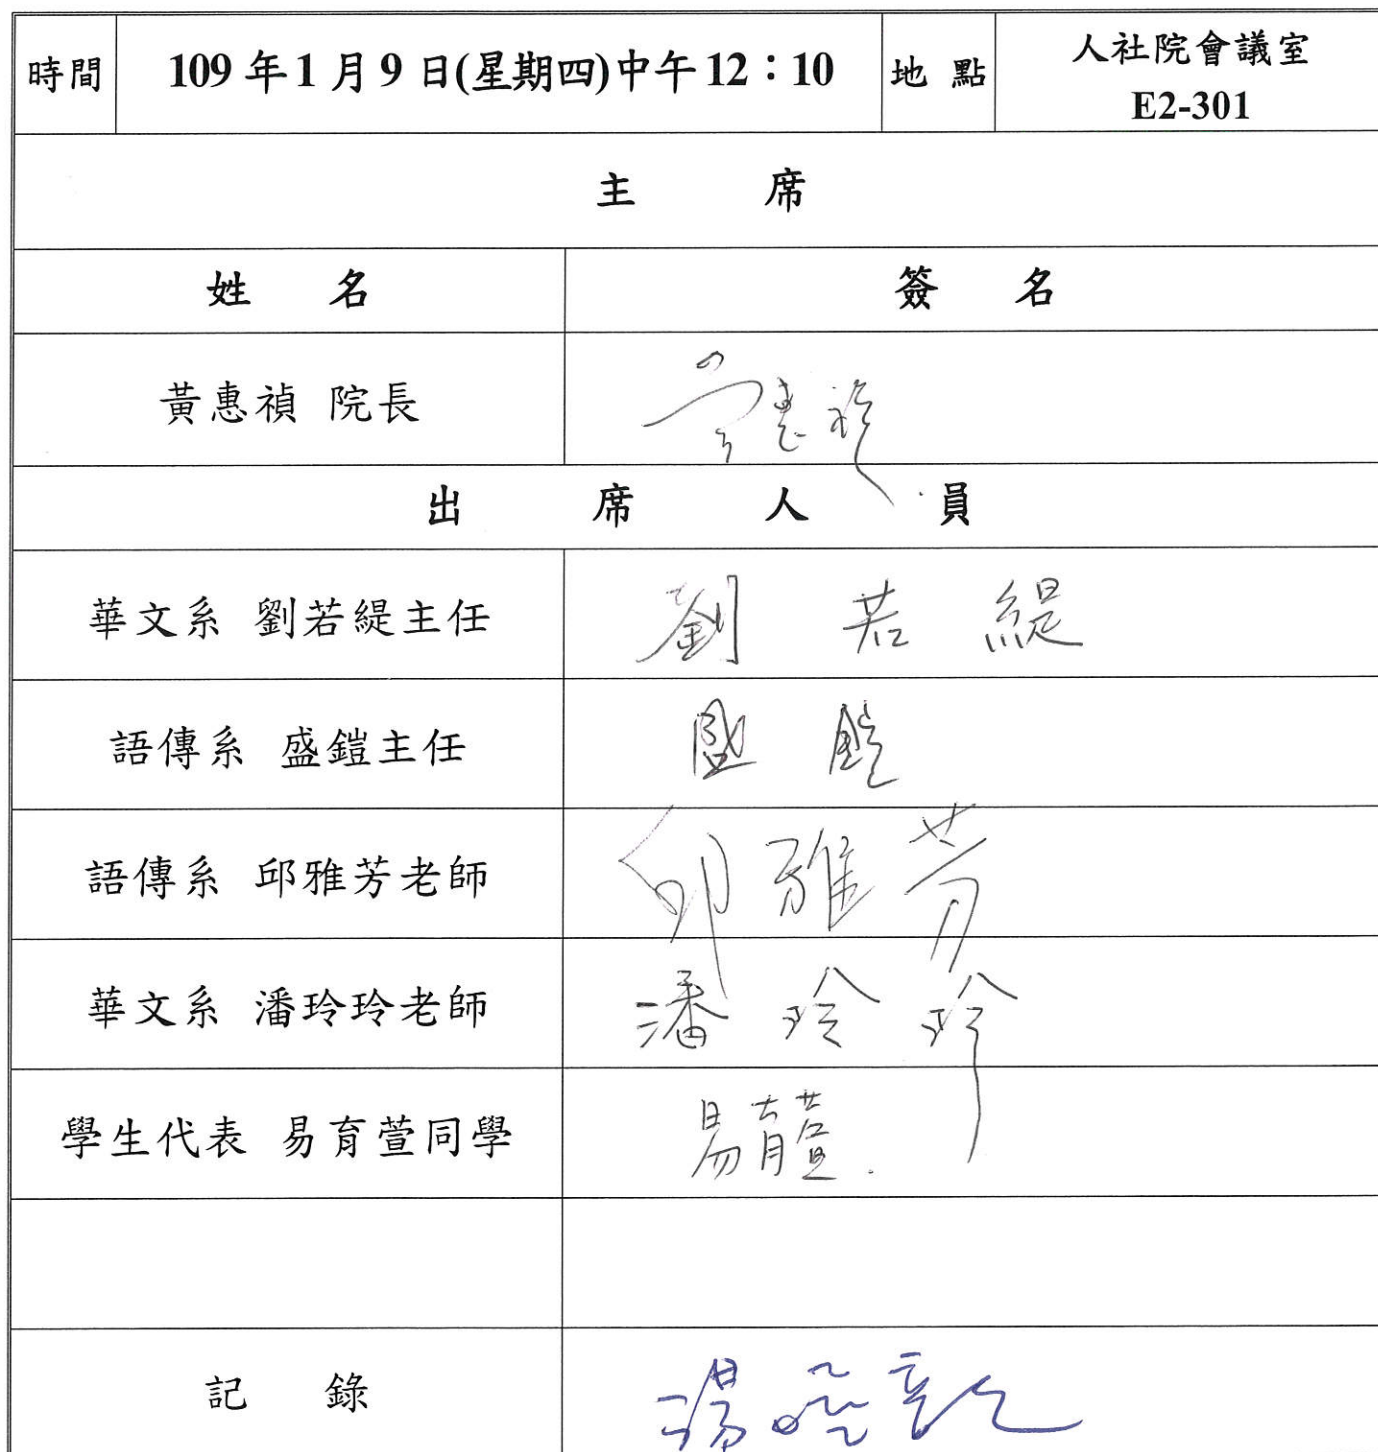 時間 109年1月9日(星期四)中午12：10 地點 人社院會議室
E2-301
主席
姓名 簽名
黃惠禎 院長 黃惠禎
出席人員
華文系 劉若緹主任 劉若緹
語傳系 盛鎧主任 盛鎧
語傳系 邱雅芳老師 邱雅芳
華文系 潘玲玲老師 潘玲玲
學生代表 易育萱同學 易育萱
記錄 湯